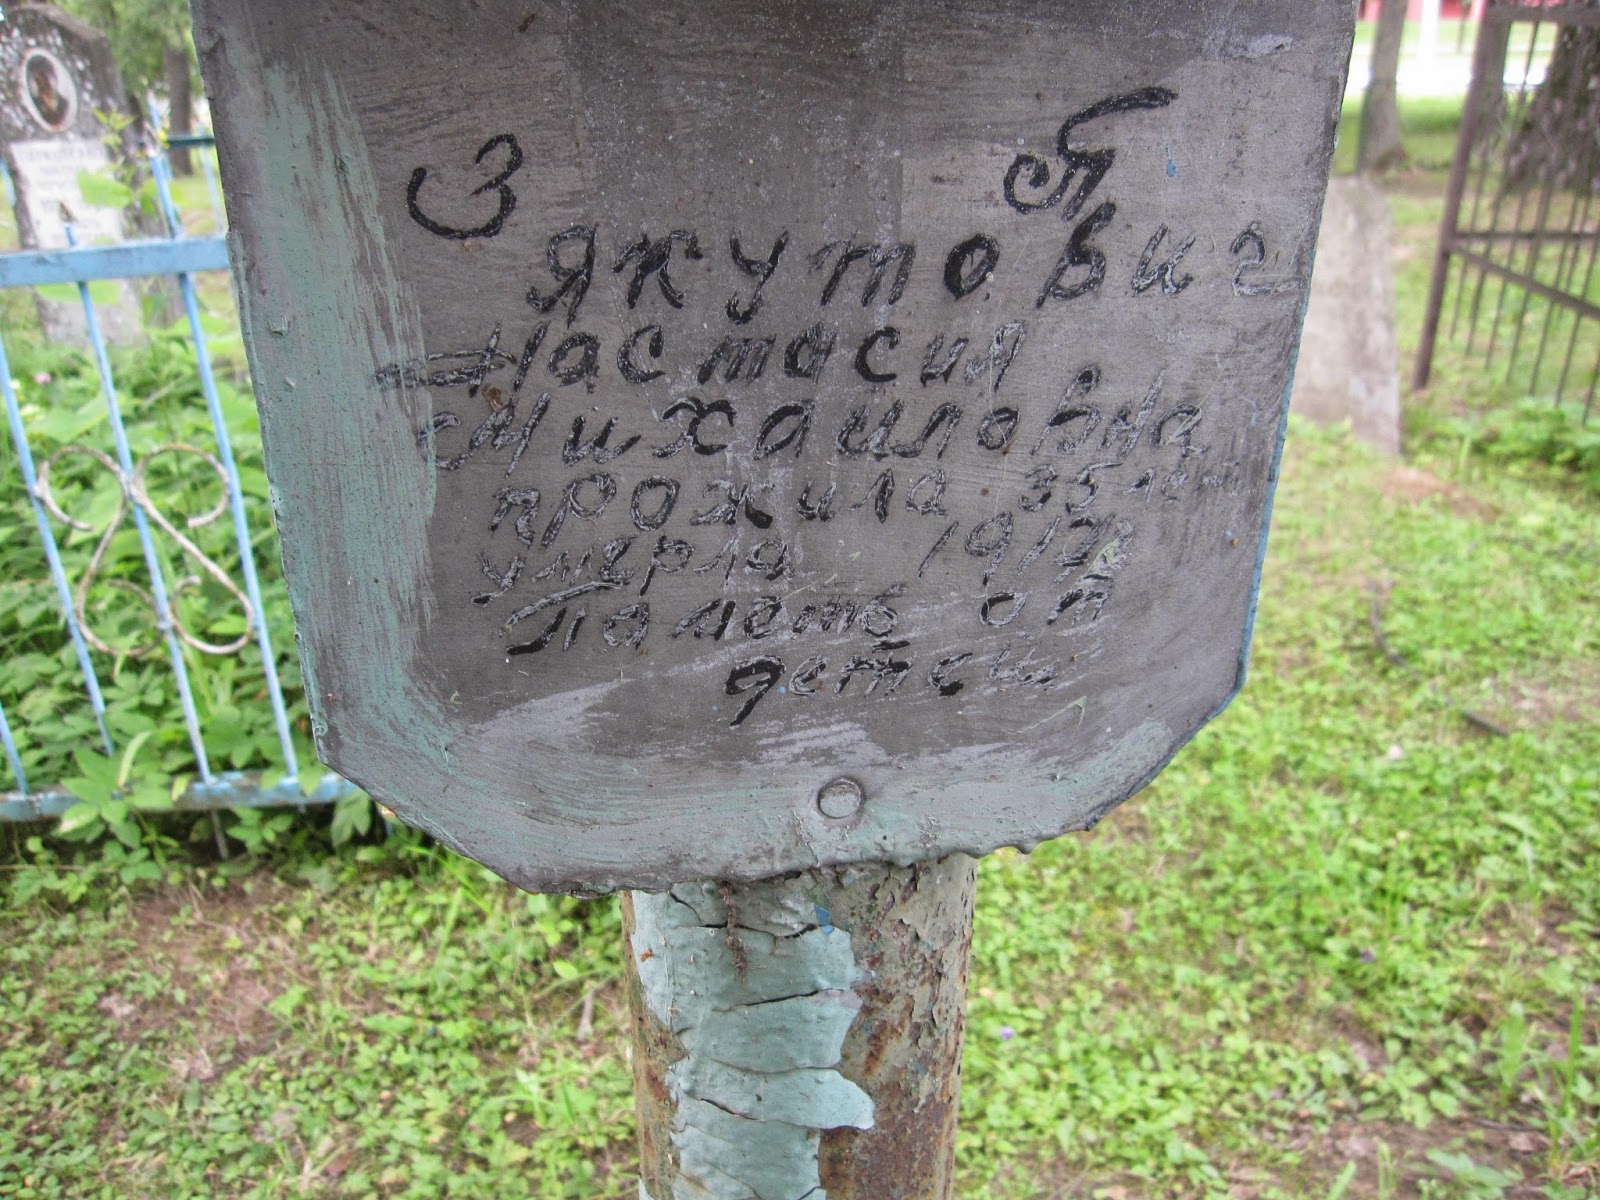 З П
якутовиг
Настасия
Михаиловна
прожила 35 лет
умерла
Паметь от
детси